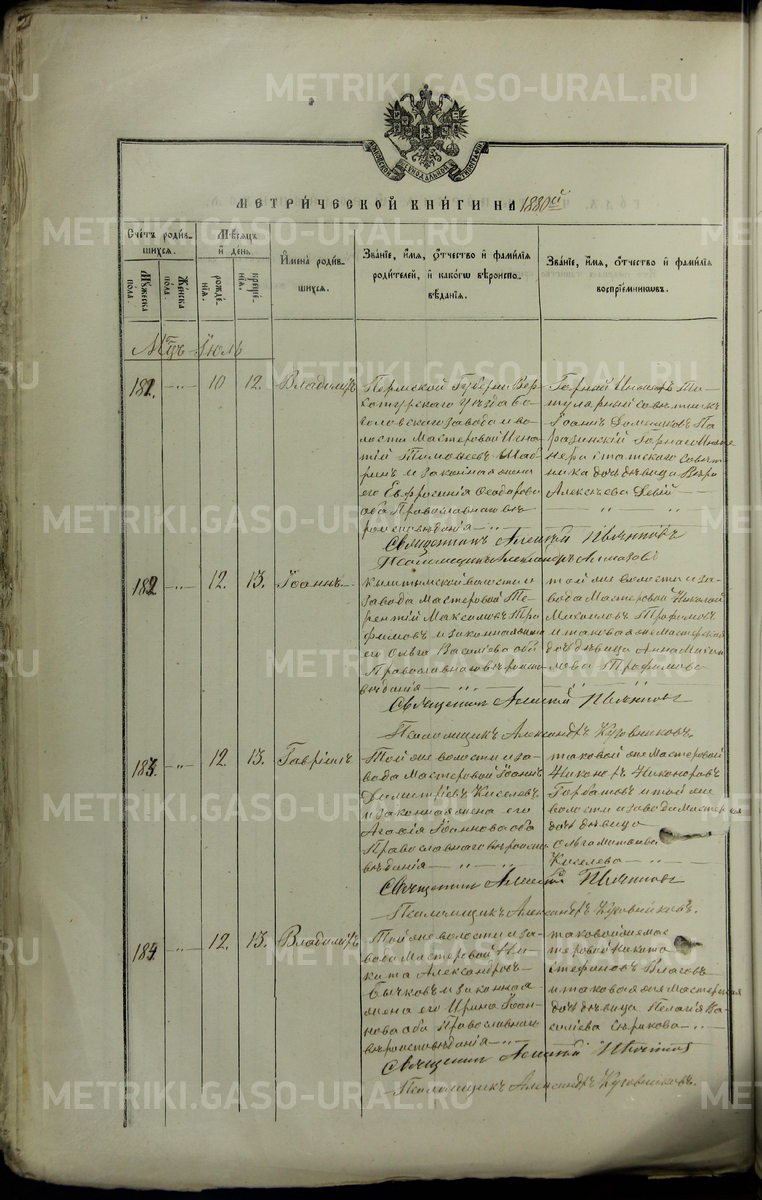 METRIKI.GASO-URAL.RU
МЕТРИЧЕСКОЙ КНИГИ НА 1880й
Счетъ родившихся.
Мужеска пола.
Женска пола.
Мѣсяцъ и день.
рожденія.
крещенія.
Имена родившихся.
Званіе, имя, отчество и фамилія родителей, и какого вѣроисповѣданія.
Званіе, имя, отчество и фамилія воспріемниковъ.
Мѣсяцъ Іюль
181. 10 12. Владиміръ
Пермской Губерни Вер-
хотурскаго Уѣзда Бо-
гословскаго завода и во-
лости Мастеровой Игна-
тій Тимофеевъ
и законная жена
его Евфросинія Феодорова
оба Православнаго вѣ-
роисповѣданія
Горный Инженеръ Ти-
тулярный совѣтникъ
Іоаннъ
Горнаго Инже-
нера статскаго совѣт-
ника дочь дѣвица Вѣра
Алексѣева
Священникъ Алексѣй
Псаломщикъ Александръ
182 12. 13. Іоаннъ
Кыштымской волости и
завода Мастеровой Те-
рентій Максимовъ Тро-
фимовъ и законная жена
его Ольга Василіева оба
Православнаго вѣроиспо-
вѣданія
той же волости и за-
вода Мастеровой Николай
Михаиловъ Трофимовъ
и таковая же Мастерская
дочь дѣвица Анна Макси-
мова Трофимова
Священникъ Алексѣй
Псаломщикъ Александръ Кузовниковъ.
183. 12. 13. Гавріилъ
Той же волости и за-
вода Мастеровой Іоаннъ
Димитріевъ Киселевъ
и законная жена его
Агафія Іоаннова оба
Православнаго вѣроиспо-
вѣданія
таковой же Мастеровой
Никоноръ Никоноровъ
Горбатовъ и той же
волости и завода Мастерская
дочь дѣвица
Ольга Матвѣева
Киселева
Священникъ Алексѣй
Псаломщикъ Александръ Кузовниковъ.
184. 12. 13. Владиміръ
Той же волости и за-
вода Мастеровой Ни-
кита Александровъ
Бычковъ и законная
жена его Ирина Іоан-
нова оба Православнаго
вѣроисповѣданія
таковой же мас-
теровой Никита
Стефановъ Власовъ
и таковая же Мастерская
дочь дѣвица Пелагія Ва-
силіева
Священникъ Алексѣй
Псаломщикъ Александръ Кузовниковъ.